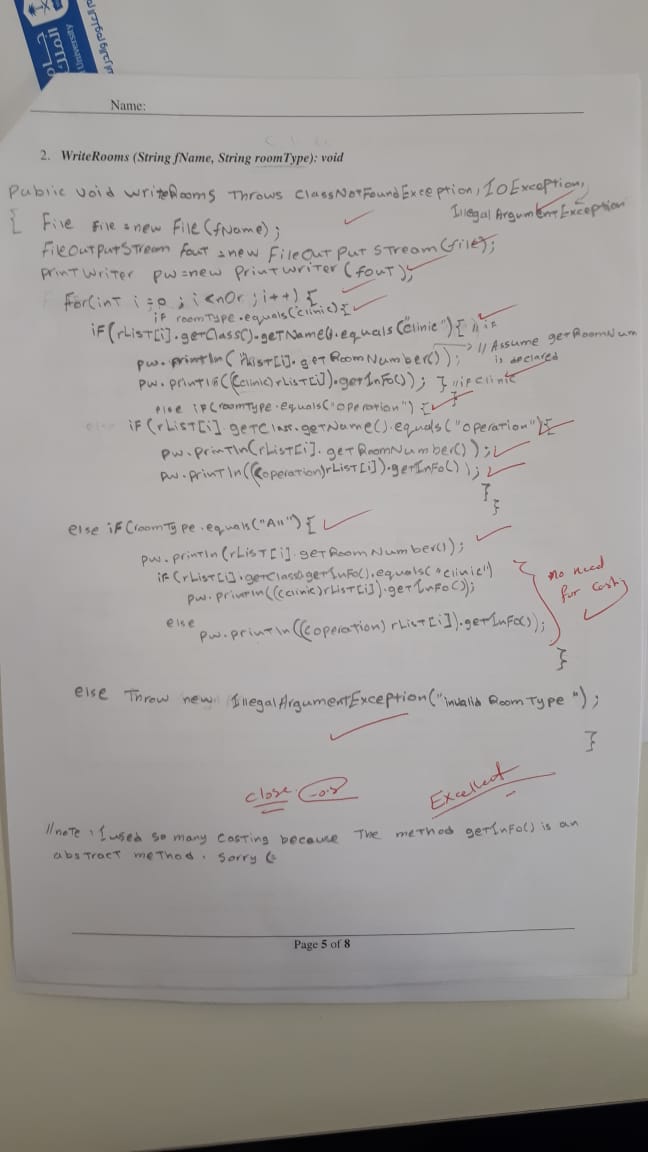 University
Name:
2. WriteRooms (String fName, String roomType): void
Public void writeRooms Throws ClassNotFoundException, IOException,
IllegalArgumentException
{ File File = new File (fName);
FileOutPutStream fout = new FileOutPutStream(file);
PrintWriter pw = new PrintWriter (fout);
For(int i = 0 ; i < nOr ; i++) {
if roomType.equals("clinic) {
iF(rList[i].getClass().getName().equals("Clinic") { // if
// Assume getRoomNum
is declared
pw.println( rList[i].getRoomNumber());
pw.println(((clinic)rList[i]).getInFo()); } //if clinic
else iF(roomType.equals("operation") { }
iF(rList[i].getClass.getName().equals("operation"){
pw.println(rList[i].getRoomNumber());
pw.println(((operation)rList[i]).getInfo());
}
}
else if(roomType.equals("All") {
pw.println(rList[i].getRoomNumber());
if(rList[i].getClass().getInFo().equals("clinic")
pw.println(((clinic)rList[i]).getInfo());
else
pw.println(((operation) rList[i]).getInFo());
no need
for Cast
}
else Throw new IllegalArgumentException("invalid Room Type ");
}
close -0.5
Excellent
//note : I used so many casting because The method getInFo() is an
absTract meThod. Sorry (:
Page 5 of 8